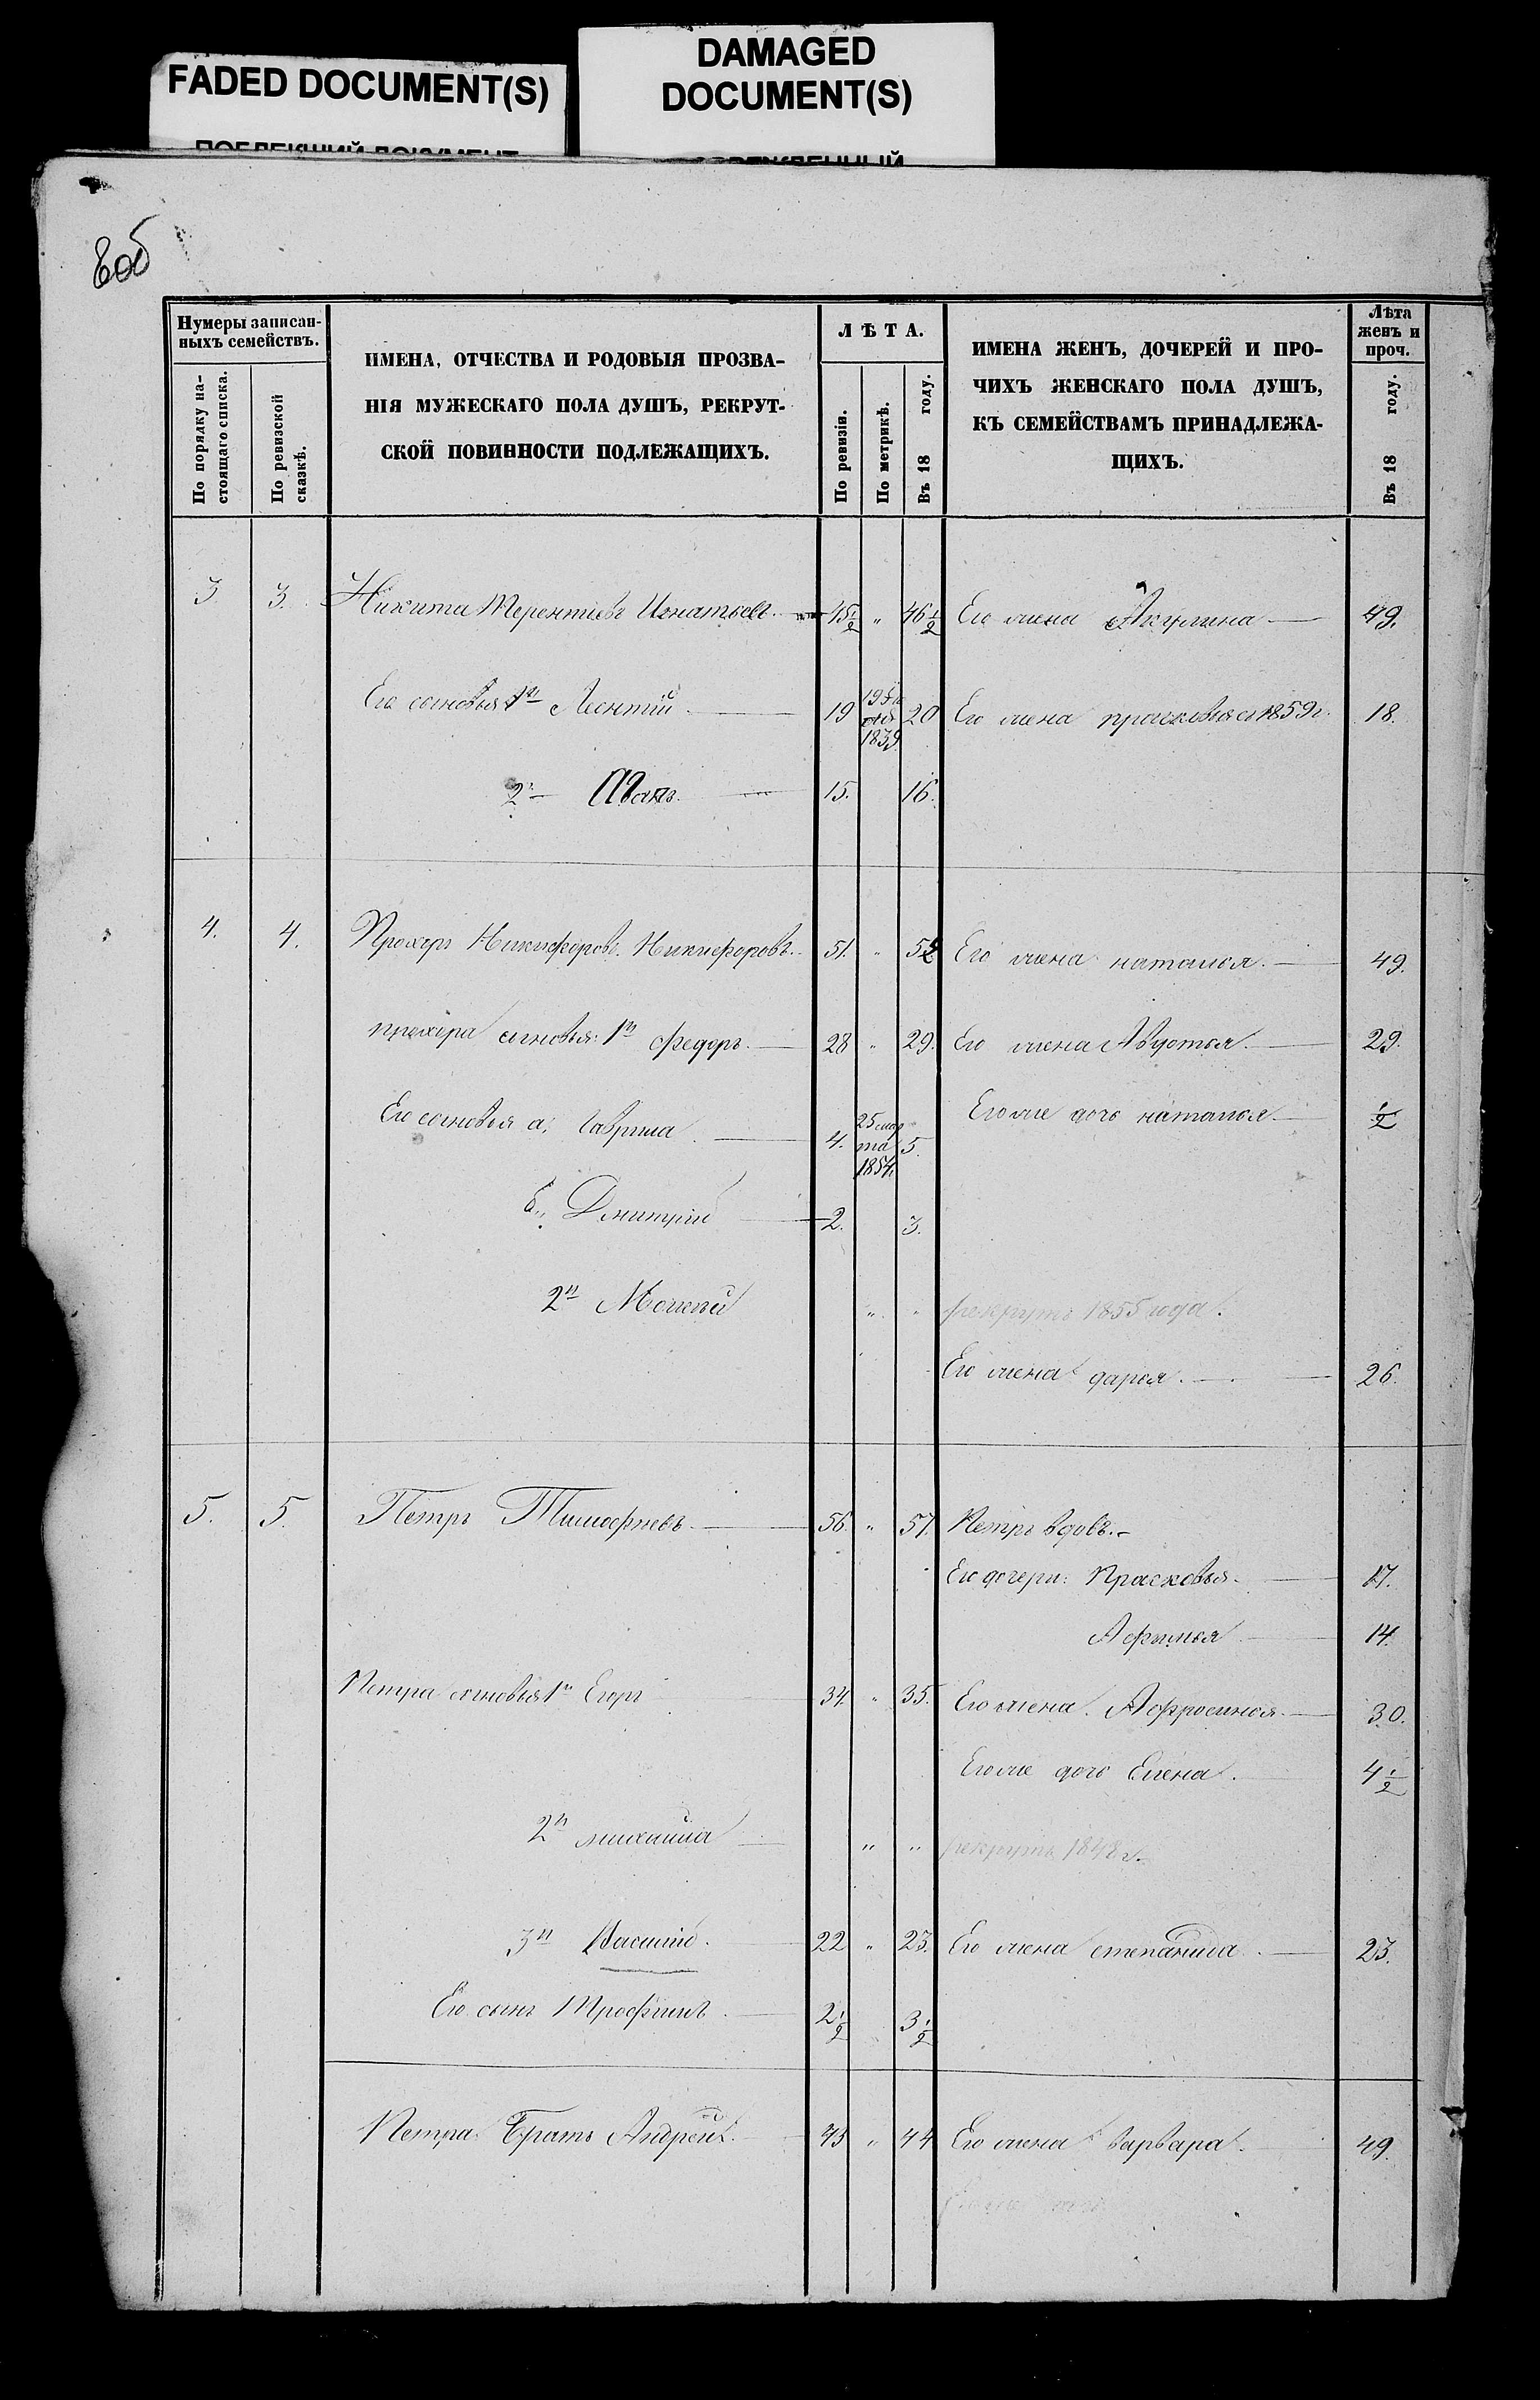 FADED DOCUMENT(S)
DAMAGED
DOCUMENT(S)
8об
Нумеры записан-
ныхъ семействъ.
По порядку на-
стоящаго списка.
По ревизской
сказкѣ.
ИМЕНА, ОТЧЕСТВА И РОДОВЫЯ ПРОЗВА-
НІЯ МУЖЕСКАГО ПОЛА ДУШЪ, РЕКРУТ-
СКОЙ ПОВИННОСТИ ПОДЛЕЖАЩИХЪ.
ЛѢТА.
По ревизіи.
По метрикѣ.
Въ 18 году.
ИМЕНА ЖЕНЪ, ДОЧЕРЕЙ И ПРО-
ЧИХЪ ЖЕНСКАГО ПОЛА ДУШЪ,
КЪ СЕМЕЙСТВАМЪ ПРИНАДЛЕЖА-
ЩИХЪ.
Лѣта
женъ и
проч.
Въ 18 году.
3 3. Никита Терентьевъ Игнатьевъ 45½ " 46½ Его жена Акулина 49.
Его сыновья 1й Леонтій 19 1839 20 Его жена прасковья съ 1859г. 18.
2й Иванъ. 15. 16.
4. 4. Прохоръ Никифоровъ Никифоровъ 51. " 52 Его жена наталья. 49.
прохора сыновья: 1й федоръ. 28 " 29. Его жена Авдотья. 29.
Его сыновья а, Гаврила 4. 25 мар та 1854. 5. Его же дочь наталья ½
б,, Дмитрій 2. 3.
2й Мокей " " рекрутъ 1855 года.
Его жена дарья. 26.
5. 5. Петръ Тимофеевъ. 56. " 57. Петръ вдовъ.
Его дочери: Прасковья. 17.
Афимья 14.
Петра сыновья 1й Егоръ 34. " 35. Его жена. Афросинья. 30.
Его же дочь Елена. 4½
2й михаила " " рекрутъ 1848 г.
3й Василій. 22 " 23. Его жена степанида. 23.
Его сынъ Трофимъ. 2½ 3½
Петра Братъ Андрей. 43 " 44 Его жена варвара. 49.